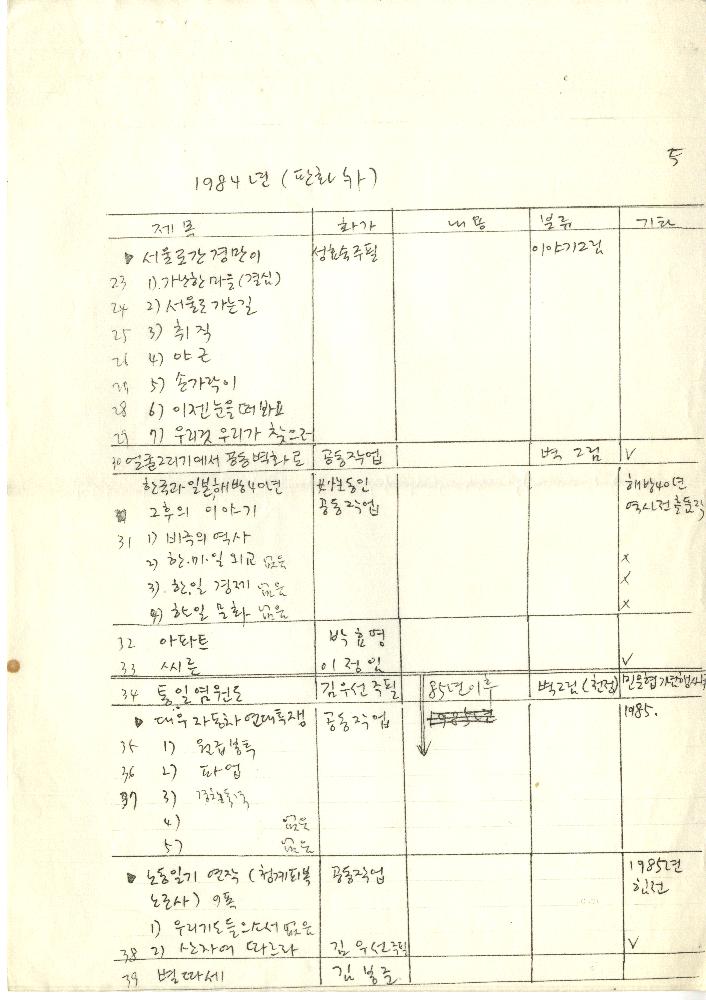 5
1984년 (판화 하)
제목 화가 내용 분류 기타
▶ 서울로간 경만이 성효숙주필 이야기그림
23 1) 가난한 마을 (결심)
24 2) 서울로 가는길
25 3) 취직
26 4) 야근
5) 손가락이
28 6) 이젠 눈을 떠봐요
29 7) 우리것 우리가 찾으러
30 얼굴그리기에서 공동벽화로 공동작업 벽 그림 √
한국과 일본, 해방40년 동인 해방40년
그후의 이야기 공동작업 역사전
31 1) 비극의 역사
2) 한·미·일 외교 없음 x
3) 한·일 경제 없음 x
4) 한일 문화 없음 x
32 아파트 박효명
33 씨름 이정임 √
34 통일염원도 김우선주필 85년이후 벽그림 (천정)
▶ 대우자동차 연대투쟁 공동작업 1985년 1985.
35 1)
36 2) 파업
37 3)
4) 없음
5) 없음
▶ 노동일기 연작 (청계피복 공동작업 1985년
노조사) 9폭 힘전
1) 우리기도들으소서 없음
38 2) 산자여 따르라 김우선주필 √
39 별따세 김봉준